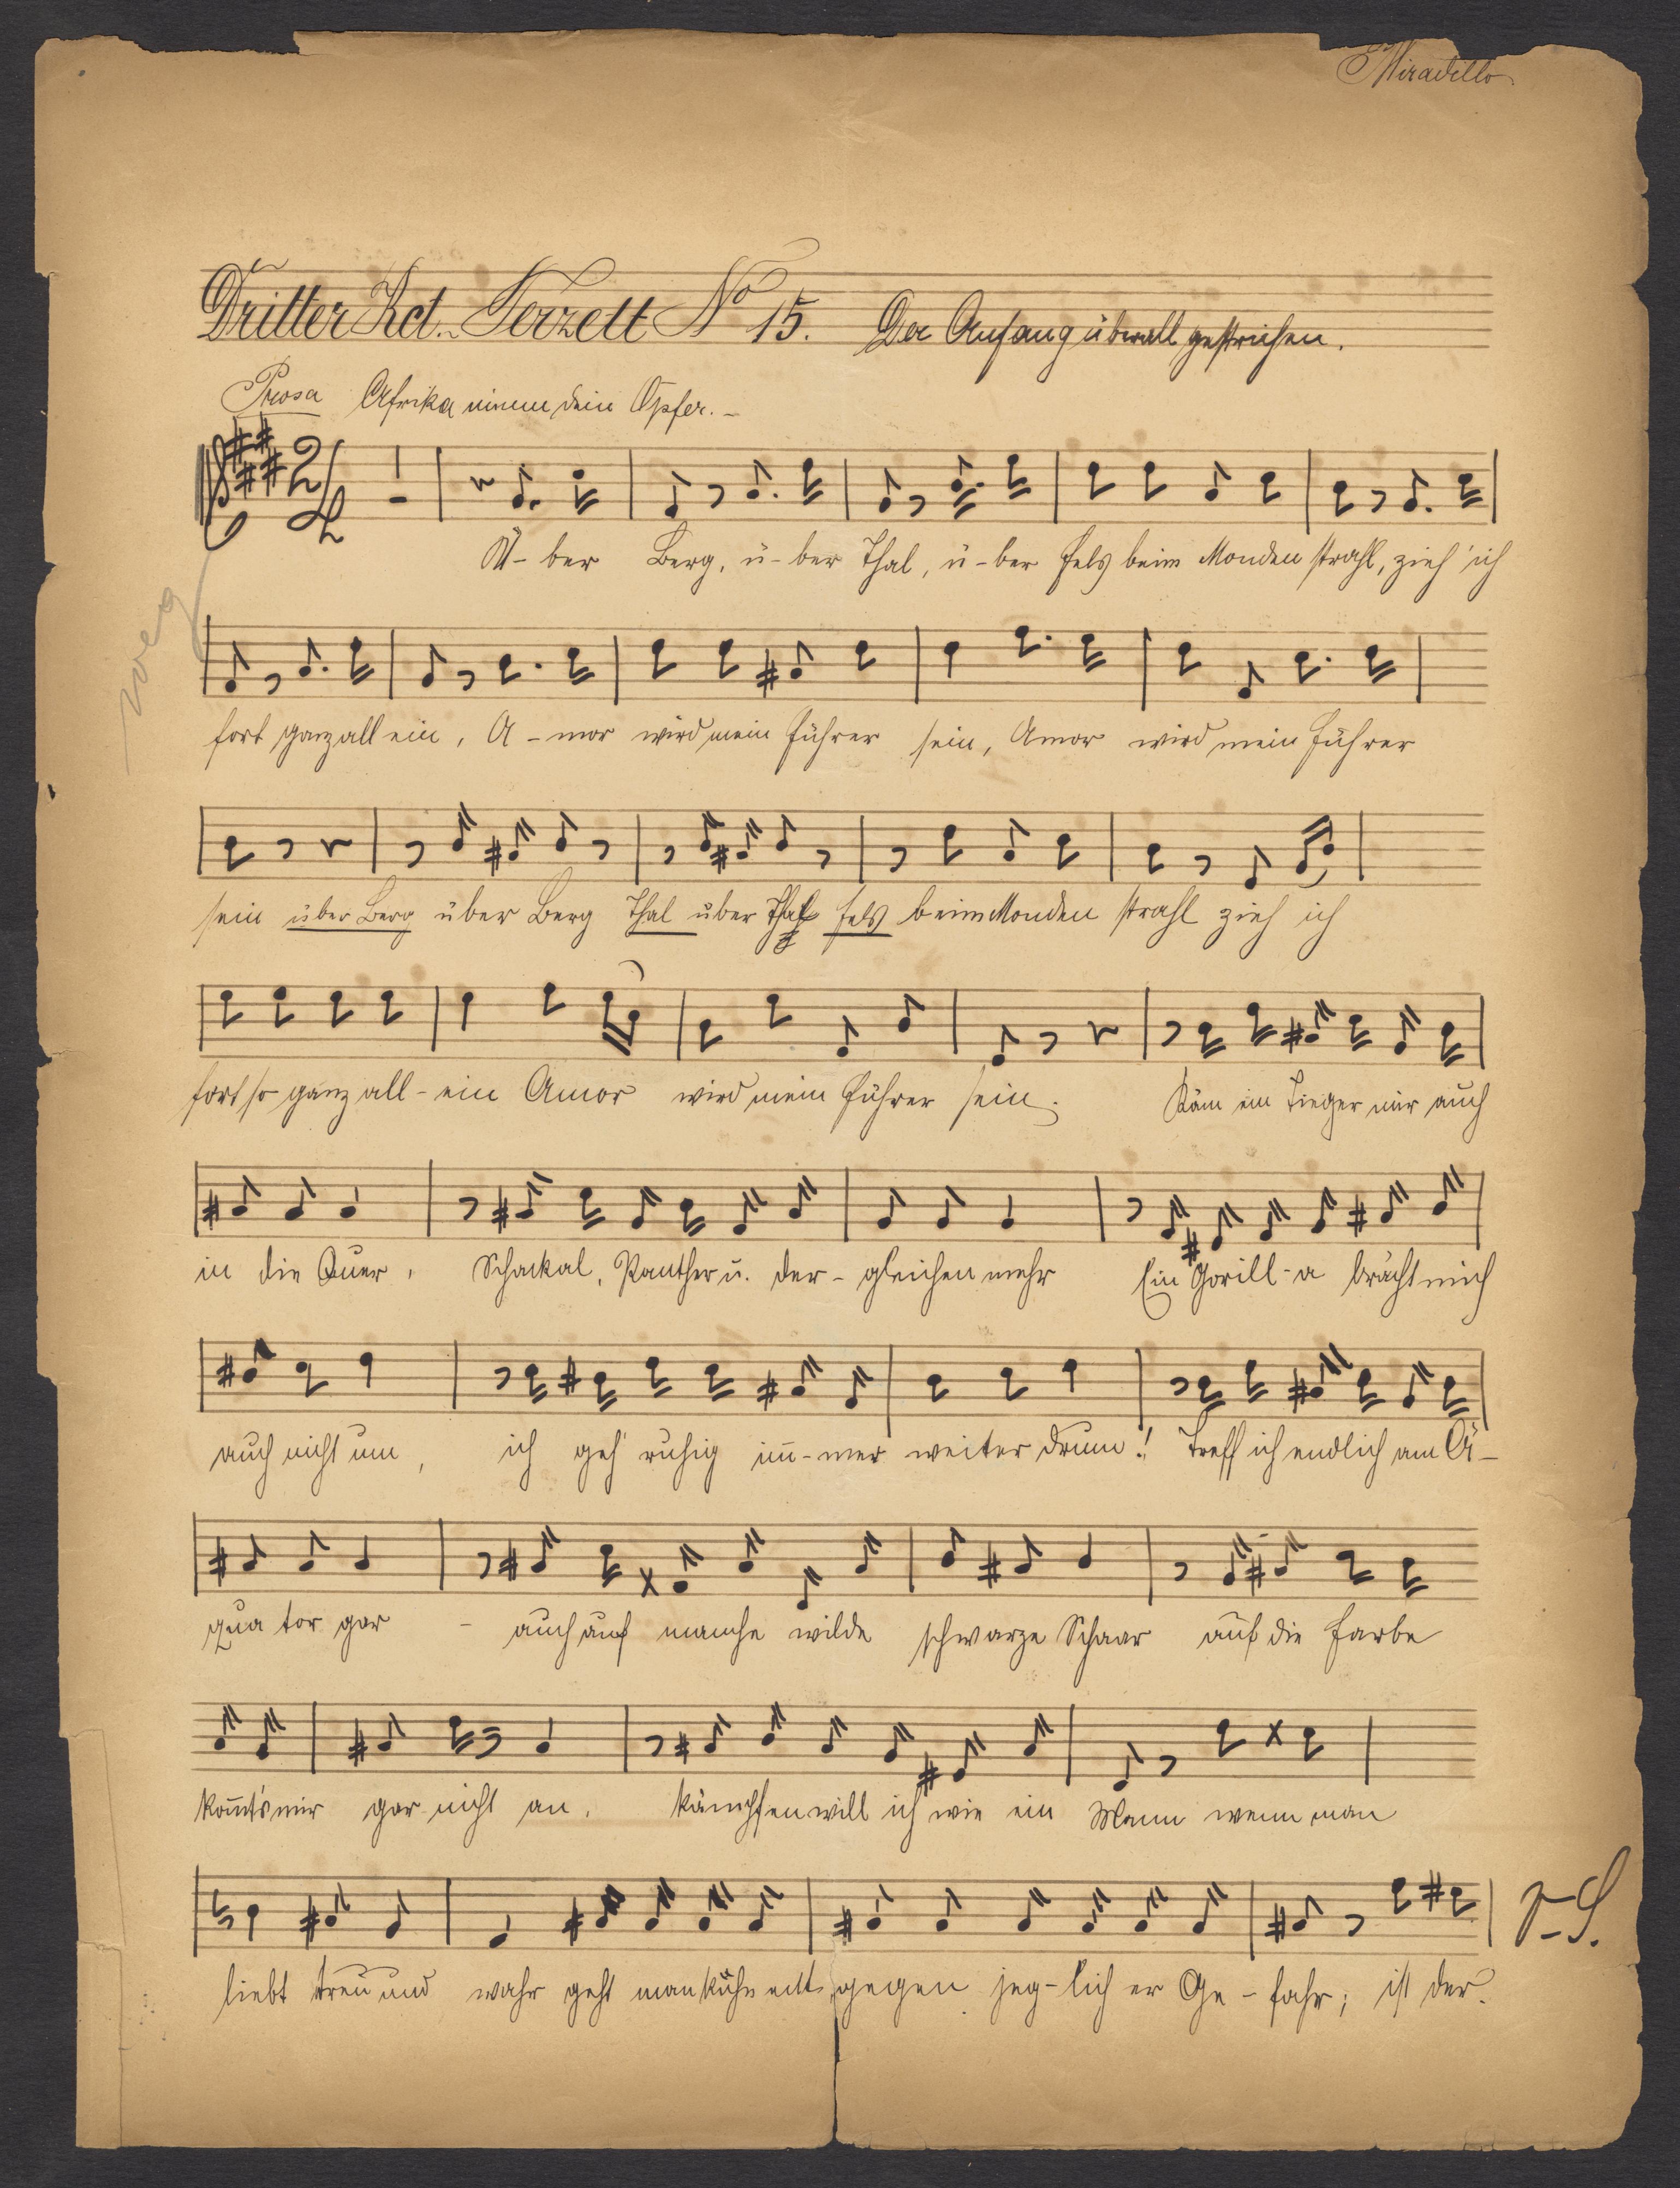 Miradillo
Dritter Act. Terzett No 15. Der Anfang überall gestrichen.
Prosa Afrika nimm dein Opfer. –
Ü-ber Berg, ü-ber Thal, ü-ber Fels beim Monden strahl, zieh' ich
weg
fort ganz all ein, A-mor wird mein Führer sein, Amor wird mein Führer
sein über Berg über Berg Thal über Thal Fels beim Monden strahl zieh ich
fort so ganz all-ein Amor wird mein Führer sein. Käm ein Tieger mir auch
in die Quer, Schackal, Panther u. der-gleichen mehr Ein Gorill-a brächt mich
auch nicht um, ich geh' ruhig im̄-mer weiter drum! Treff ich endlich am Ä-
qua tor gar - auch auf manche wilde schwarze Schaar auf die Farbe
kom̄t's mir gar nicht an. kämpfen will ich wie ein Mann wenn man
liebt treu und wahr geht man kühn ent gegen jeg-lich er Ge-fahr; ist der
V-S.